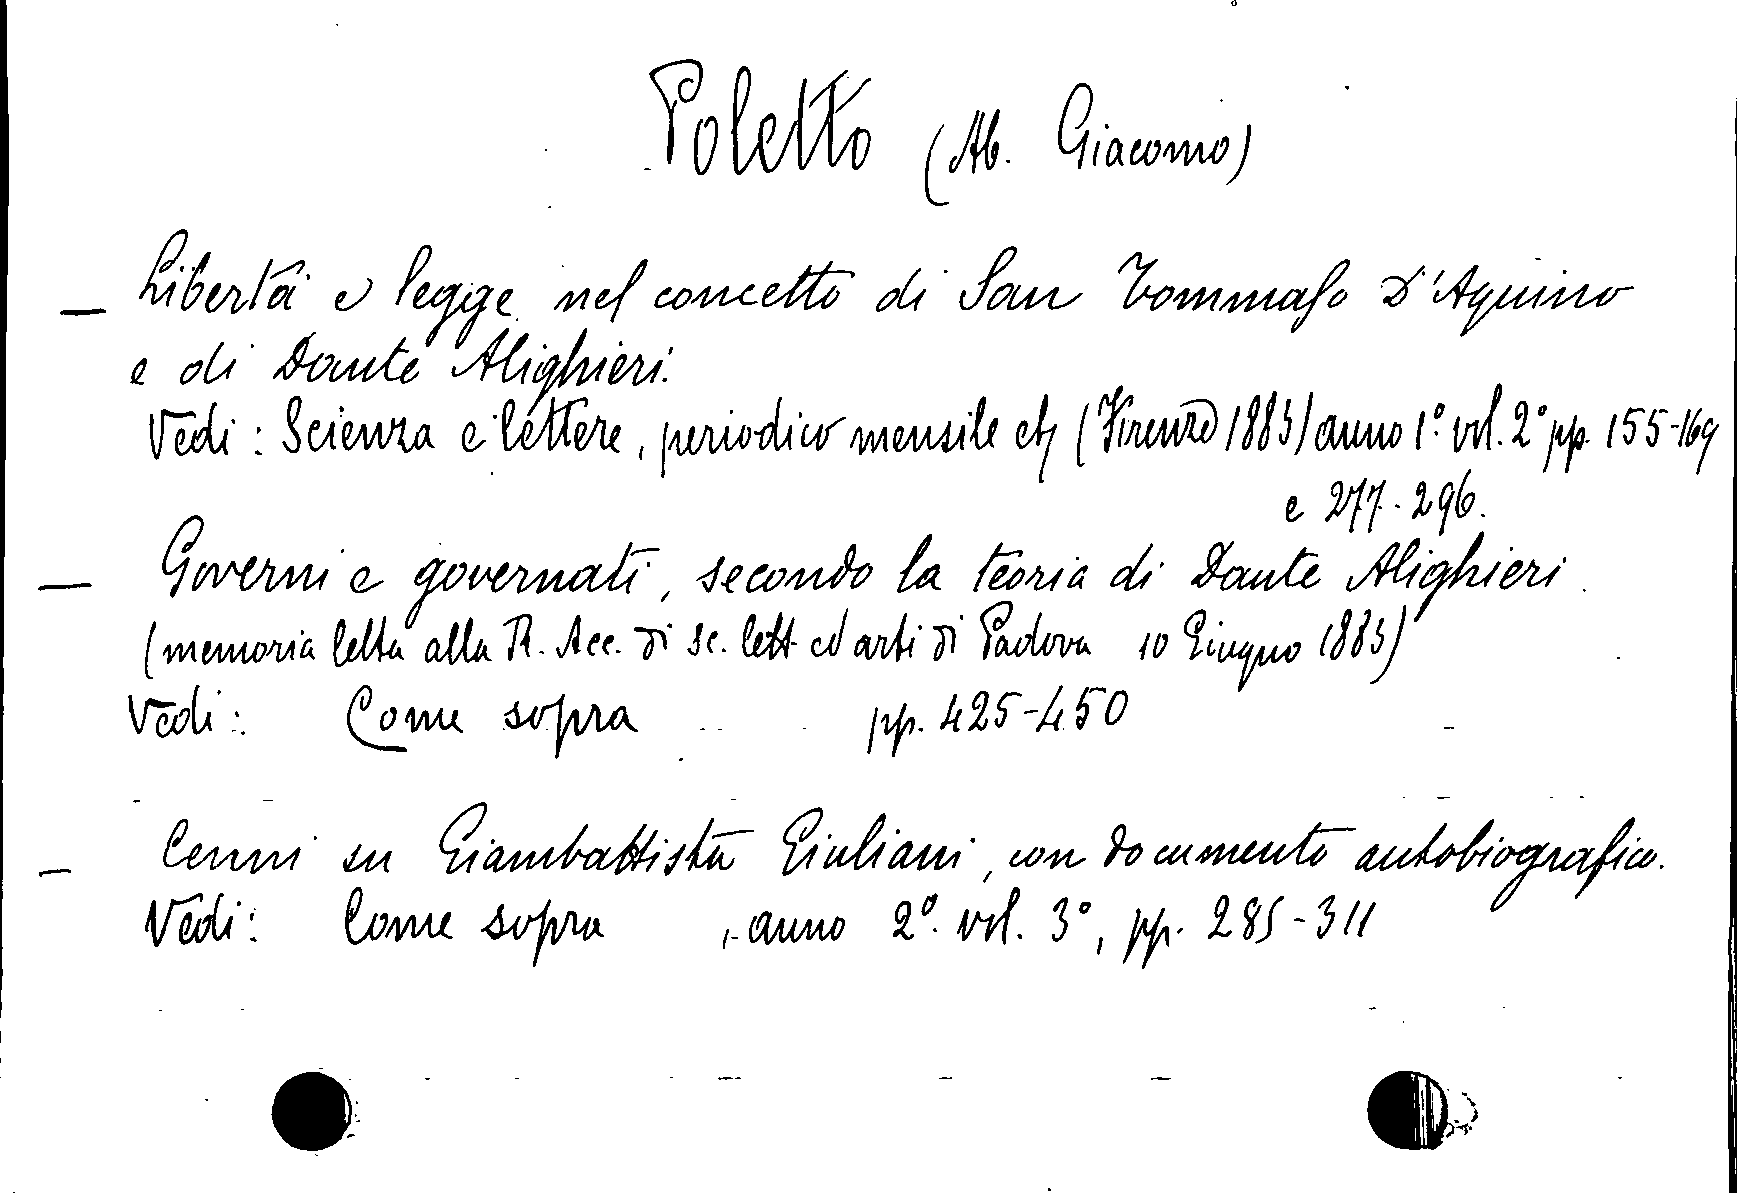 Poletto (Ab. Giacomo)
— Libertà e legge nel concetto di San Tommaso D'Aquino
e di Dante Alighieri.
Vedi: Scienza e lettere, periodico mensile etc (Firenze 1883) anno 1.° vol. 2° pp. 155-169
e 277-296.
— Governi e governati, secondo la teoria di Dante Alighieri.
(memoria letta alla R. Acc. di sc. lett. ed arti di Padova 10 Giugno 1883)
Vedi: Come sopra pp. 425-450
— Cenni su Giambattista Giuliani, con documento autobiografico.
Vedi: Come sopra, anno 2.° vol. 3°, pp. 285-311